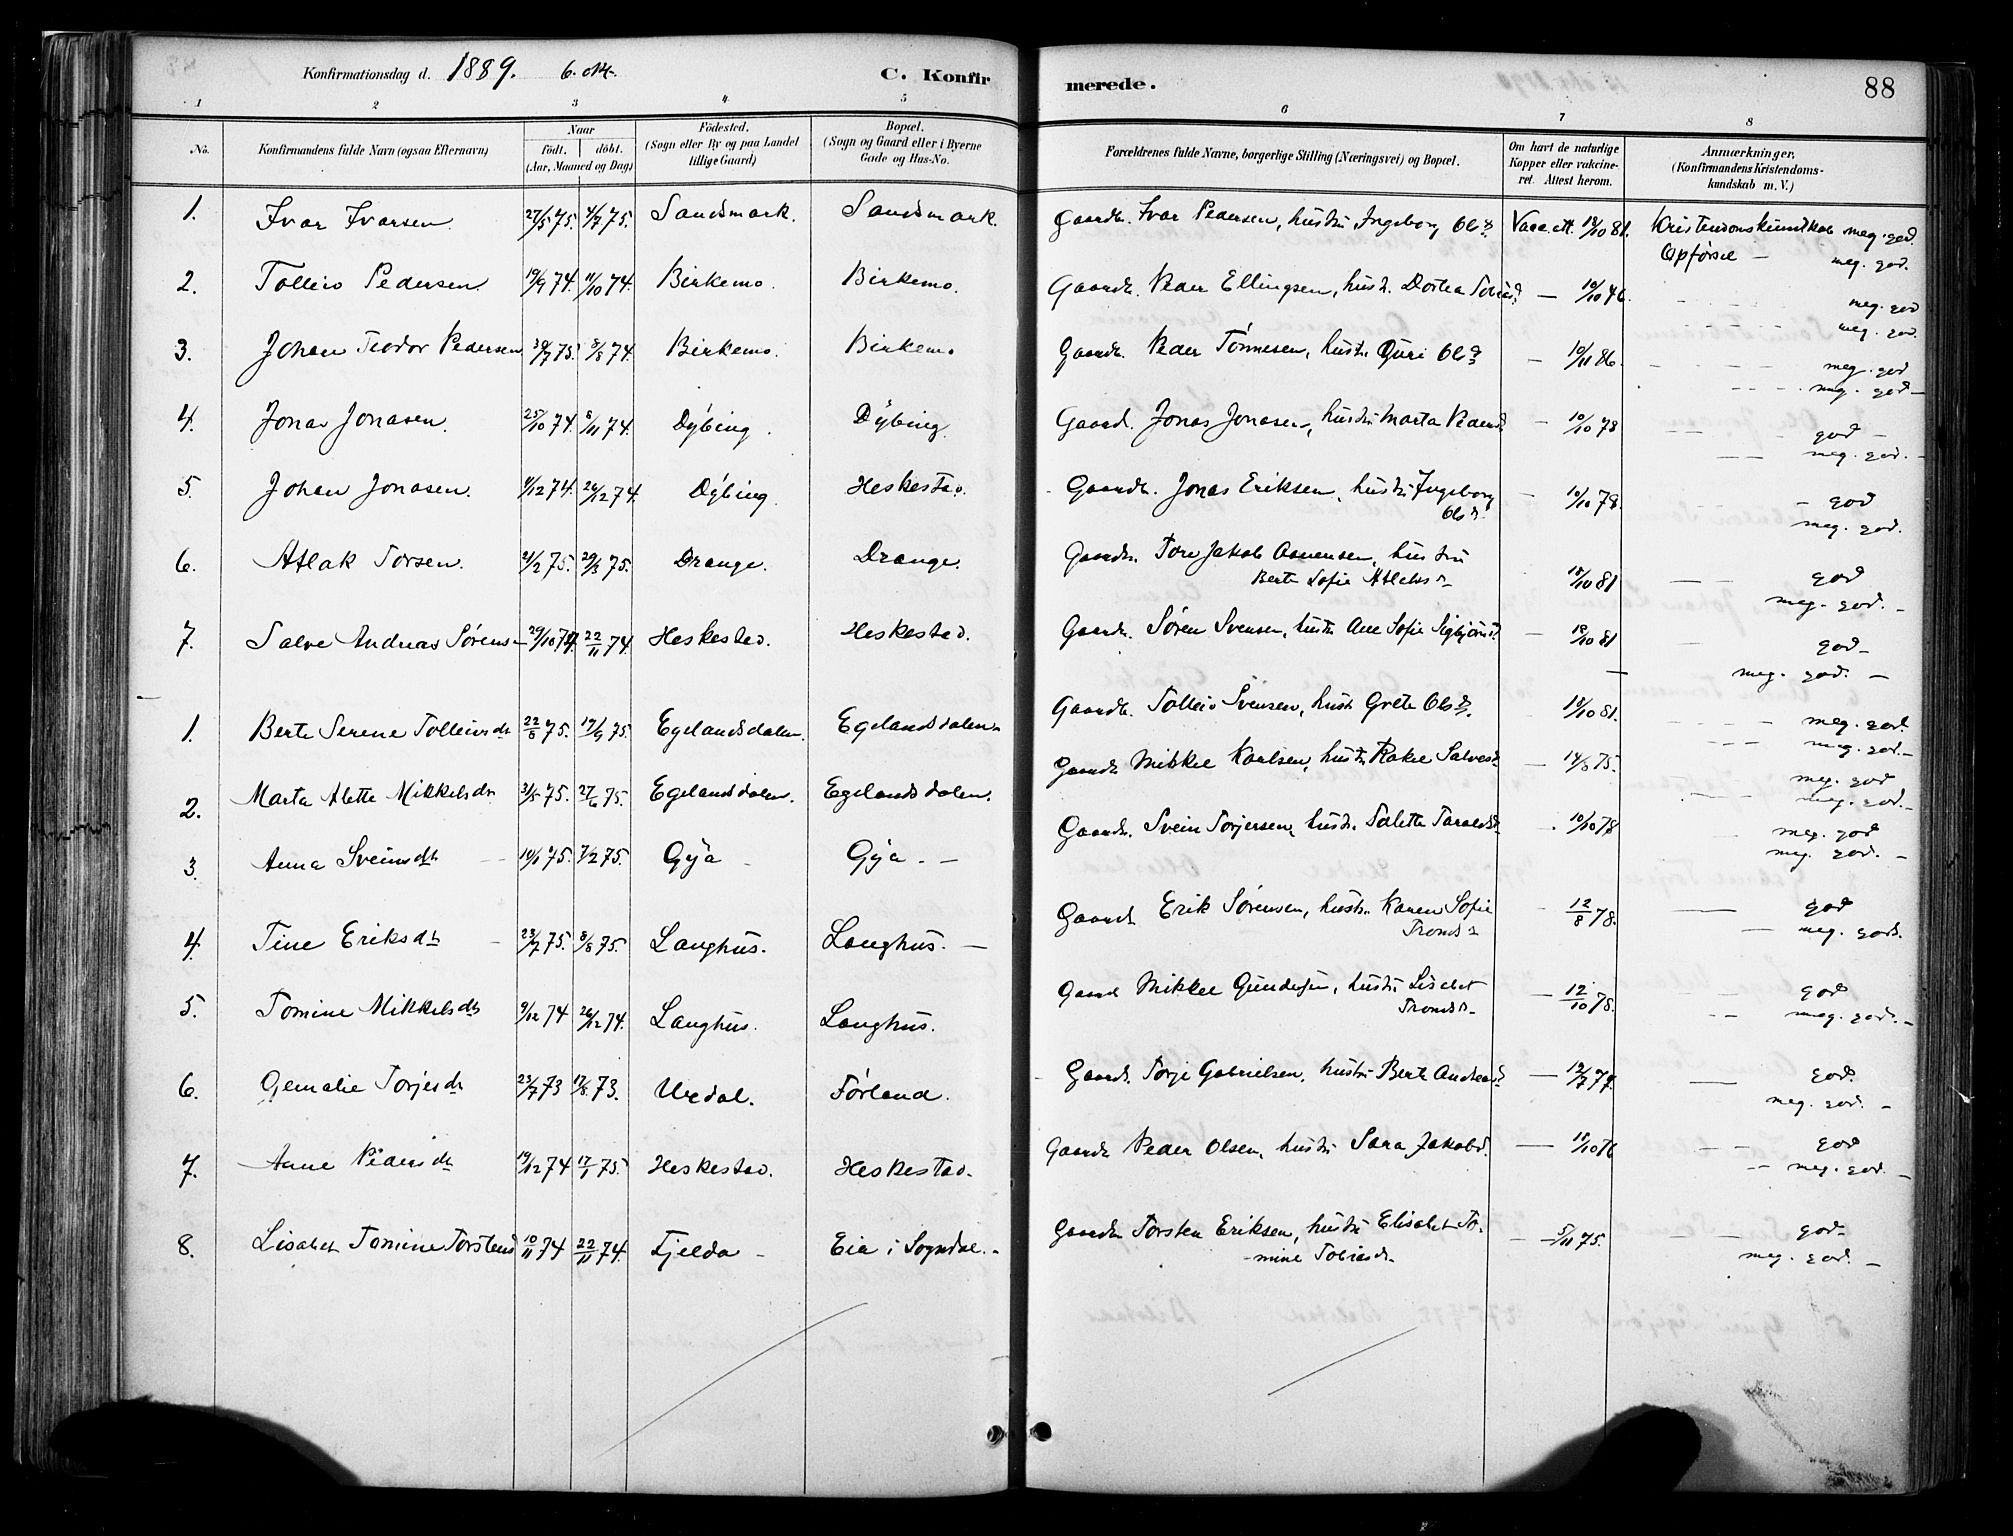 Konfirmationsdag d. 1889. 6. okt. C. Konfirmerede. 88
1 2 3 4 5 6 7 8
No. Konfirmandens fulde Navn (ogsaa Efternavn) Naar födt. döbt. (Aar, Maaned og Dag) Födested. (Sogn eller By og paa Landet tillige Gaard) Bopæl. (Sogn og Gaard eller i Byerne Gade og Hus-No. Forældrenes fulde Navne, borgerlige Stilling (Næringsvei) og Bopæl. Om havt de naturlige Kopper eller vakcineret. Attest herom. Anmærkninger, (Konfirmandens Kristendomskundskab m. V.)
1. Ivar Ivarsen. 27/5 75. 4/7 75. Sandsmark. Sandsmark. Gaardb. Ivar Pedersen, hustru Ingeborg Olsd. Vacc. att. 18/10 81. Kristendomskundskab meg. god.
Opførsel – meg. god.
2. Tolleiv Pedersen 19/9 74. 11/10 74. Birkemo. Birkemo. Gaardb. Peder Ellingsen, hust. Dortea Tobiasd. — 10/10 76. meg. god
meg. god.
3. Johan Teodor Pedersen 8/8 74. Birkemo. Birkemo Gaardb. Peder Tønnesen, hustr. Guri Olsd. — 10/11 86. meg. god
meg. god –
4. Jonas Jonasen. 25/10 74. 8/11 74. Dÿbing. Dÿbing. Gaardb. Jonas Jonasen, hustru Marta Pedersd. — 10/10 78 god –
meg. god. –
5. Johan Jonasen. 4/12 74. 26/12 74. Dÿbing. Heskestad. Gaardb. Jonas Eriksen, hustru Ingeborg Olsd. — 10/10 78. – god
meg. god.
6. Atlak Torsen. 21/2 75. 29/3 75. Drange. Drange. Gaardb. Tore Jakob Aanensen, hustru
Berte Sofie Atlaksd. 18/10 81 — god
meg. god. –
7. Salve Andreas Sørensen 29/10 74. 22/11 74. Heskestad. Heskestad. Gaardb. Søren Svensen, hustr. Ane Sofie Sigbjørnsd. — 18/10 81 – god –
meg. god. –
1. Berte Serene Tolleivsdtr 22/8 75. 19/9 75. Egelandsdalen. Egelandsdalen. Gaardb. Tolleiv Svensen, hust. Grete Olsd. 18/10 81. meg. god.
meg. god. –
2. Marta Alette Mikkelsdtr. 31/5 75. 27/6 75. Egelandsdalen. Egelandsdalen. Gaardb. Mikkel Karlsen, hustr. Rakel Salvesd. — 14/8 75. meg. god
meg. god. –
3. Anna Sveinsdtr 10/1 75. 7/2 75. Gÿa – Gÿa. – Gaardb. Svein Torjersen, hustr. Salette Taraldsd. – 10/10 78 meg. god
meg. god. –
4. Tine Eriksdtr 23/7 75. 8/8 75. Langhus. Langhus. – Gaardb. Erik Sørensen, hustr. Karen Sofie
Trondsd. – 12/8 78. — god
– meg. god.
5. Tomine Mikkelsdtr 9/12 74 26/12 74. Langhus. Langhus. Gaardb. Mikkel Gundersen, hustru Lisabet
Trondsd. — 12/10 78. – god
meg. god. –
6. Gemalie Torjesdtr 23/7 73 17/8 73. Urdal. Førland. Gaardb. Torje Gabrielsen, hustru Berte Andreasd. — 12/7 77. — god.
meg. god. –
7. Anne Pedersdtr 19/12 74 17/1 75. Heskestad. Heskestad. Gaardb. Peder Olsen, hustru Sara Jakobsd. — 18/10 76 – – god
– – meg. god. –
8. Lisabet Tomine Torstensd. 10/11 74 22/11 74. Fjelda – Eia i Sogndal. – Gaardb. Torsten Eriksen, hustru Elisabet To-
mine Tobiasd. – 5/11 75. – – god –
meg. god. –